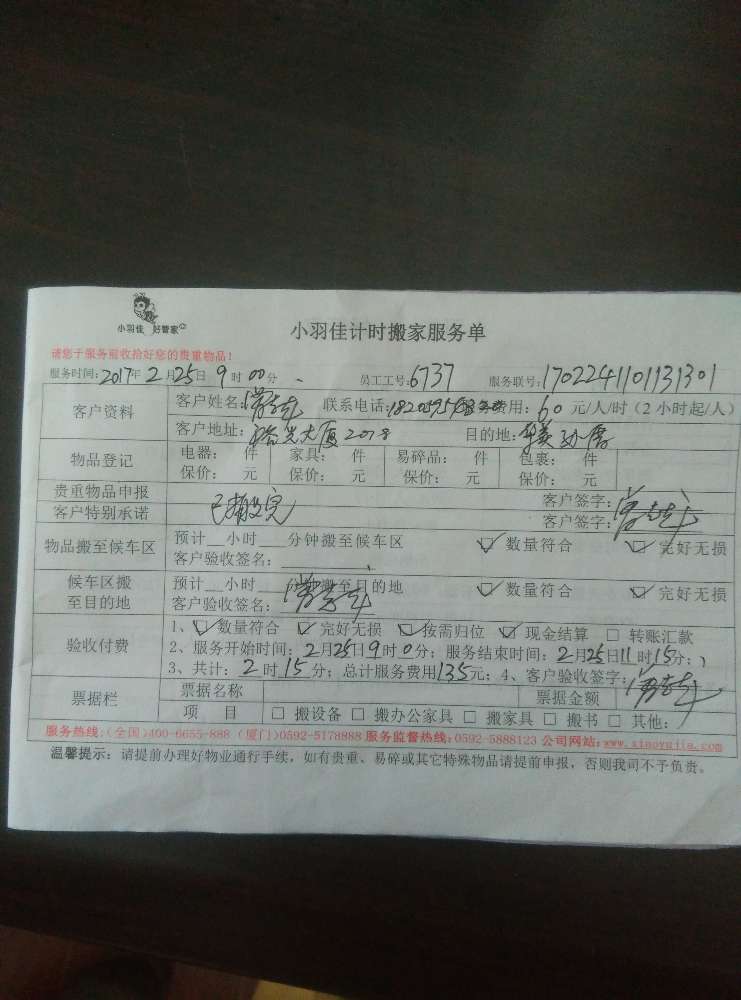 小羽佳 好管家
小羽佳计时搬家服务单
请您于服务前收拾好您的贵重物品！
服务时间：2017年2月25日9时00分、 员工工号：6737 服务联号：1702241101131301
客户资料 客户姓名： 联系电话： 服务费用：60元/人/时（2小时起/人）
客户地址： 大厦2078 目的地：
物品登记 电器： 件 家具： 件 易碎品： 件 包裹： 件
保价： 元 保价： 元 保价： 元 保价： 元
贵重物品申报 客户签字：
客户特别承诺 已搬完 客户签字：
物品搬至候车区 预计__小时___分钟搬至候车区 ☑数量符合 ☑完好无损
客户验收签名：
候车区搬至目的地 预计__小时___分钟搬至目的地 ☑数量符合 ☑完好无损
客户验收签名：
验收付费 1、☑数量符合 ☑完好无损 ☑按需归位 ☑现金结算 □转账汇款
2、服务开始时间：2月25日9时0分；服务结束时间：2月25日11时15分；
3、共计：2时15分；总计服务费用135元；4、客户验收签字：
票据栏 票据名称 票据金额
项 目 □搬设备 □搬办公家具 □搬家具 □搬书 □其他：
服务热线：（全国）400-6655-888（厦门）0592-5178888 服务监督热线：0592-5888123 公司网站：www.xiaoyujia.com
温馨提示：请提前办理好物业通行手续，如有贵重、易碎或其它特殊物品请提前申报，否则我司不予负责。